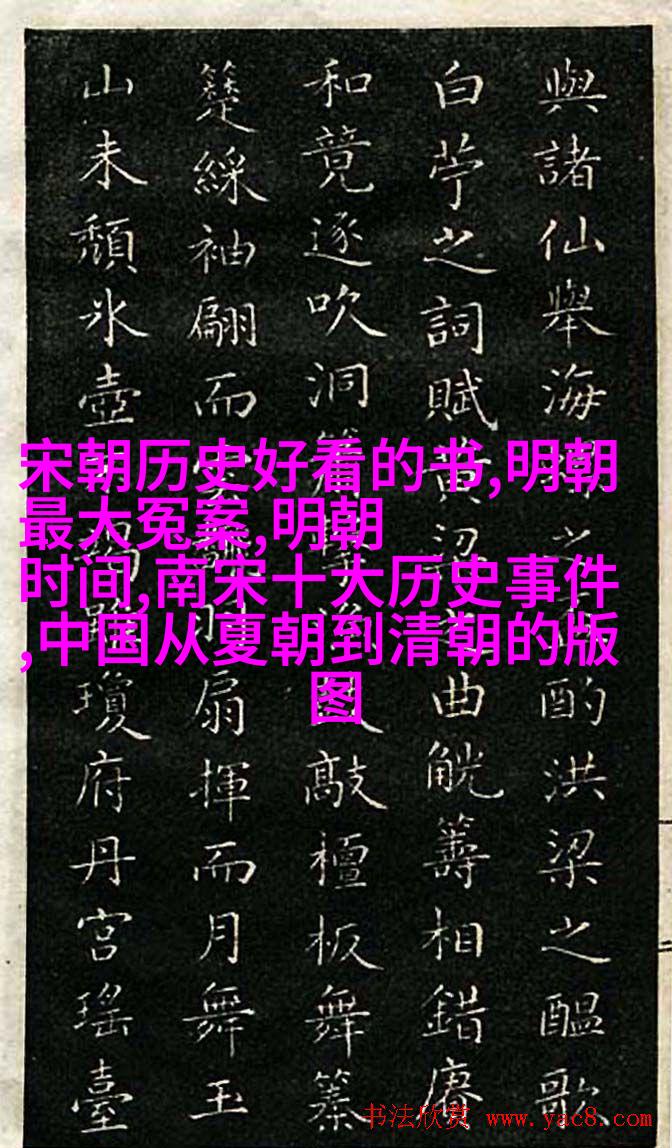 與諸仙舉海之酌洪梁之醞歌
白苧之詞賦黃梁曲觥籌相錯賡
和竟逐吹洞敲檀板舞
綵袖翩而扇揮而月舞玉
山未頹氷壺瓊府丹宮瑤臺
宋朝历史好看的书,明朝
最大冤案,明朝
时间,南宋十大历史事件
,中国从夏朝到清朝的版
图
书法欣赏 www.yac8.com